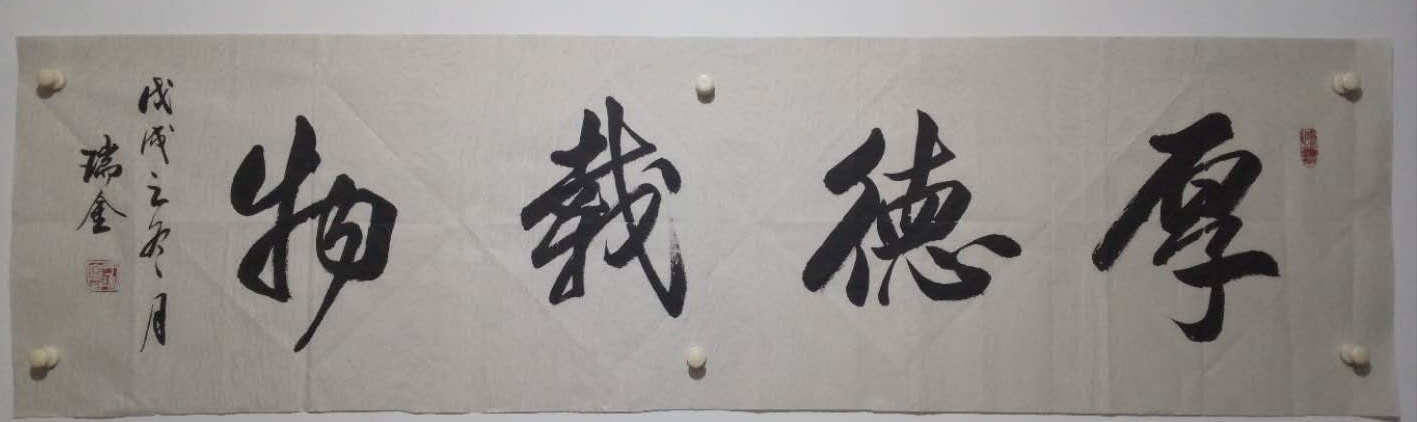 厚德载物
戊戌之冬月
瑞金